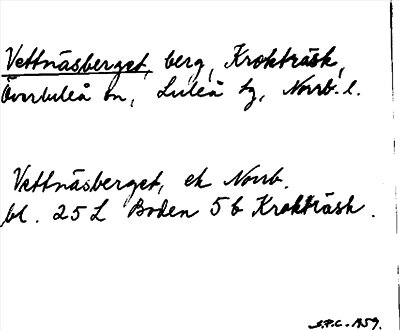 Vettnäsberget, berg, Krokträsk,
Överluleå sn, Luleå tg, Norrb. l.
Vettnäsberget, ek Norrb.
bl. 25 L Boden 5 b Krokträsk.
S.P.C. 1959.